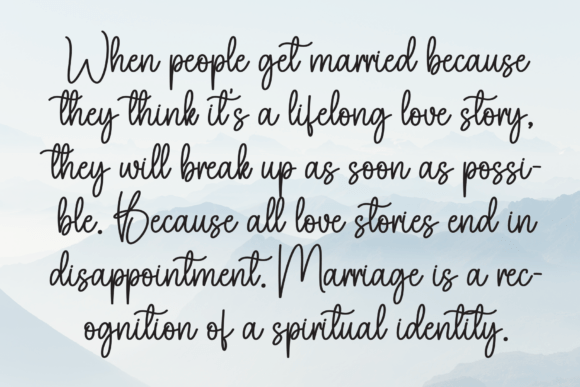 When people get married because
they think it's a lifelong love story,
they will break up as soon as possi-
ble. Because all love stories end in
disappointment. Marriage is a rec-
ognition of a spiritual identity.